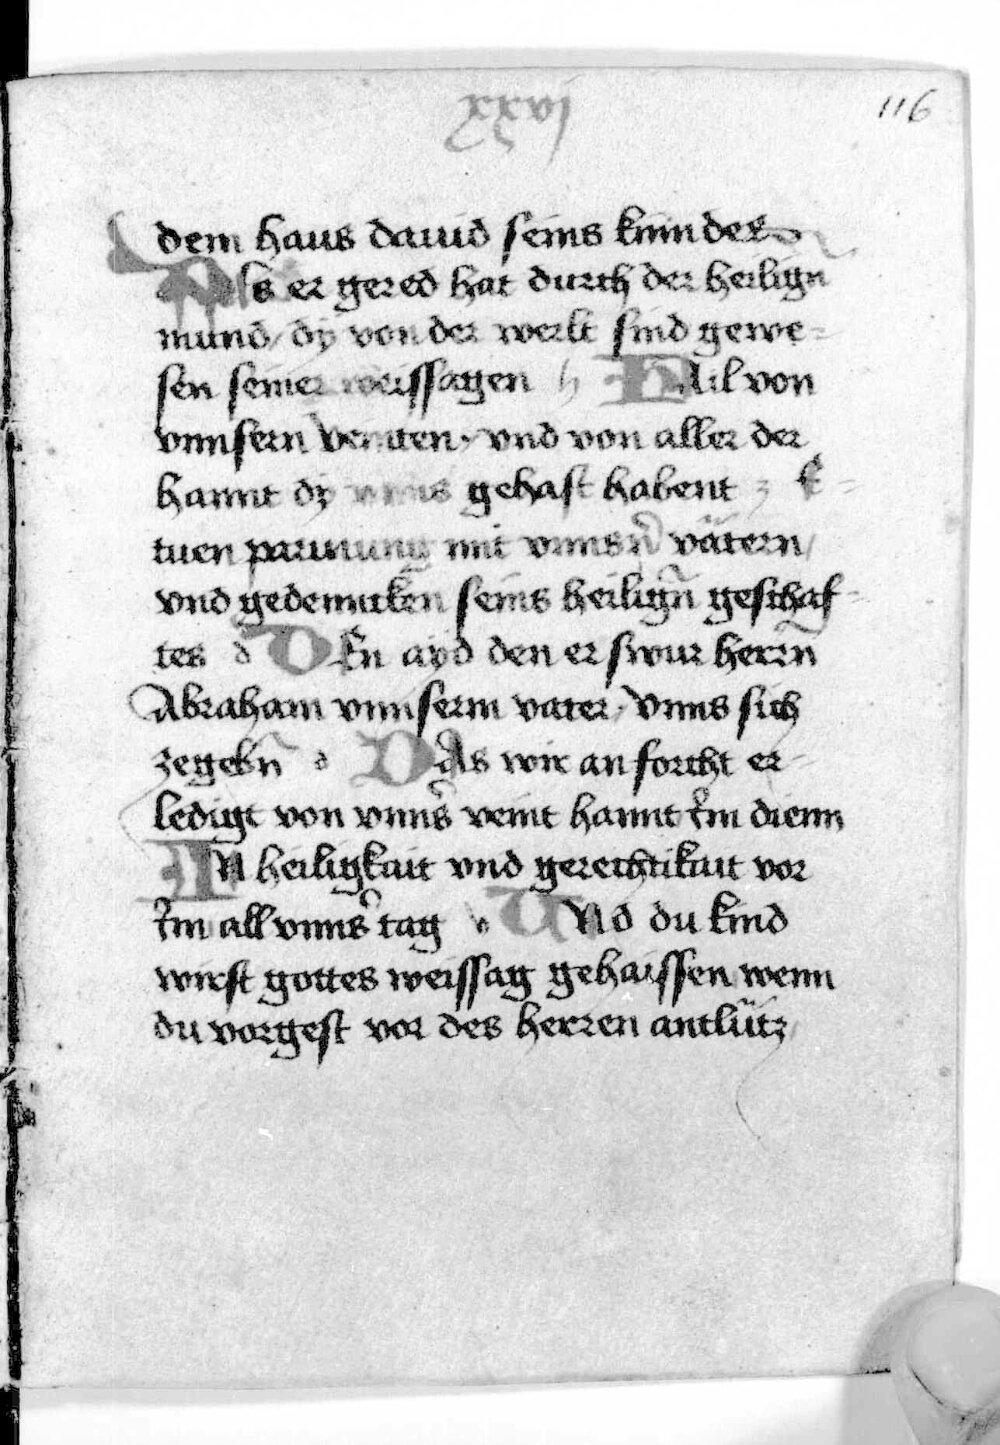 xxvj
116
dem haus dauid seins kinndes
Als er gered hat durch der heilign̄
mund / dy von der werlt sind gewe=
sen seiner weissagen h HAil von
vnnsern veinten · vnd von aller der
hannt dy vnns gehast habent z Ze=
tuen parmung mit vnnsn̄ vätern /
vnd gedennken seins heilign̄ geschaf=
tes d DEn ayd den er swur herrn̄
Abraham vnnserm vater · vnns sich
zegebn̄ d DAs wir an forcht er=
ledigt von vnns̄ veint hannt im dienn
IN heiligkait vnd gerechtikait vor
im all vnns̄ tag v VNd du kind
wirst gottes weissag gehaissen wenn
du vorgest vor des herren antlütz /